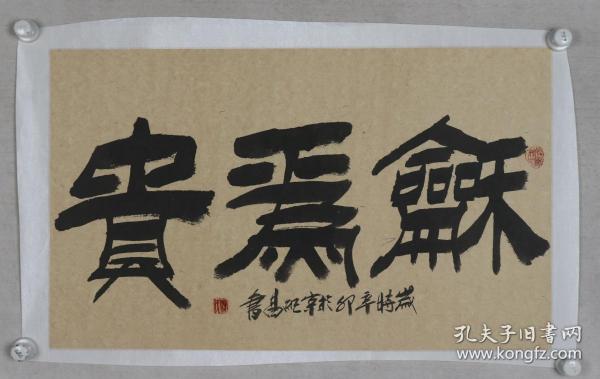 龢為貴
歲時辛卯於京書
孔夫子旧书网
www.kongfz.com